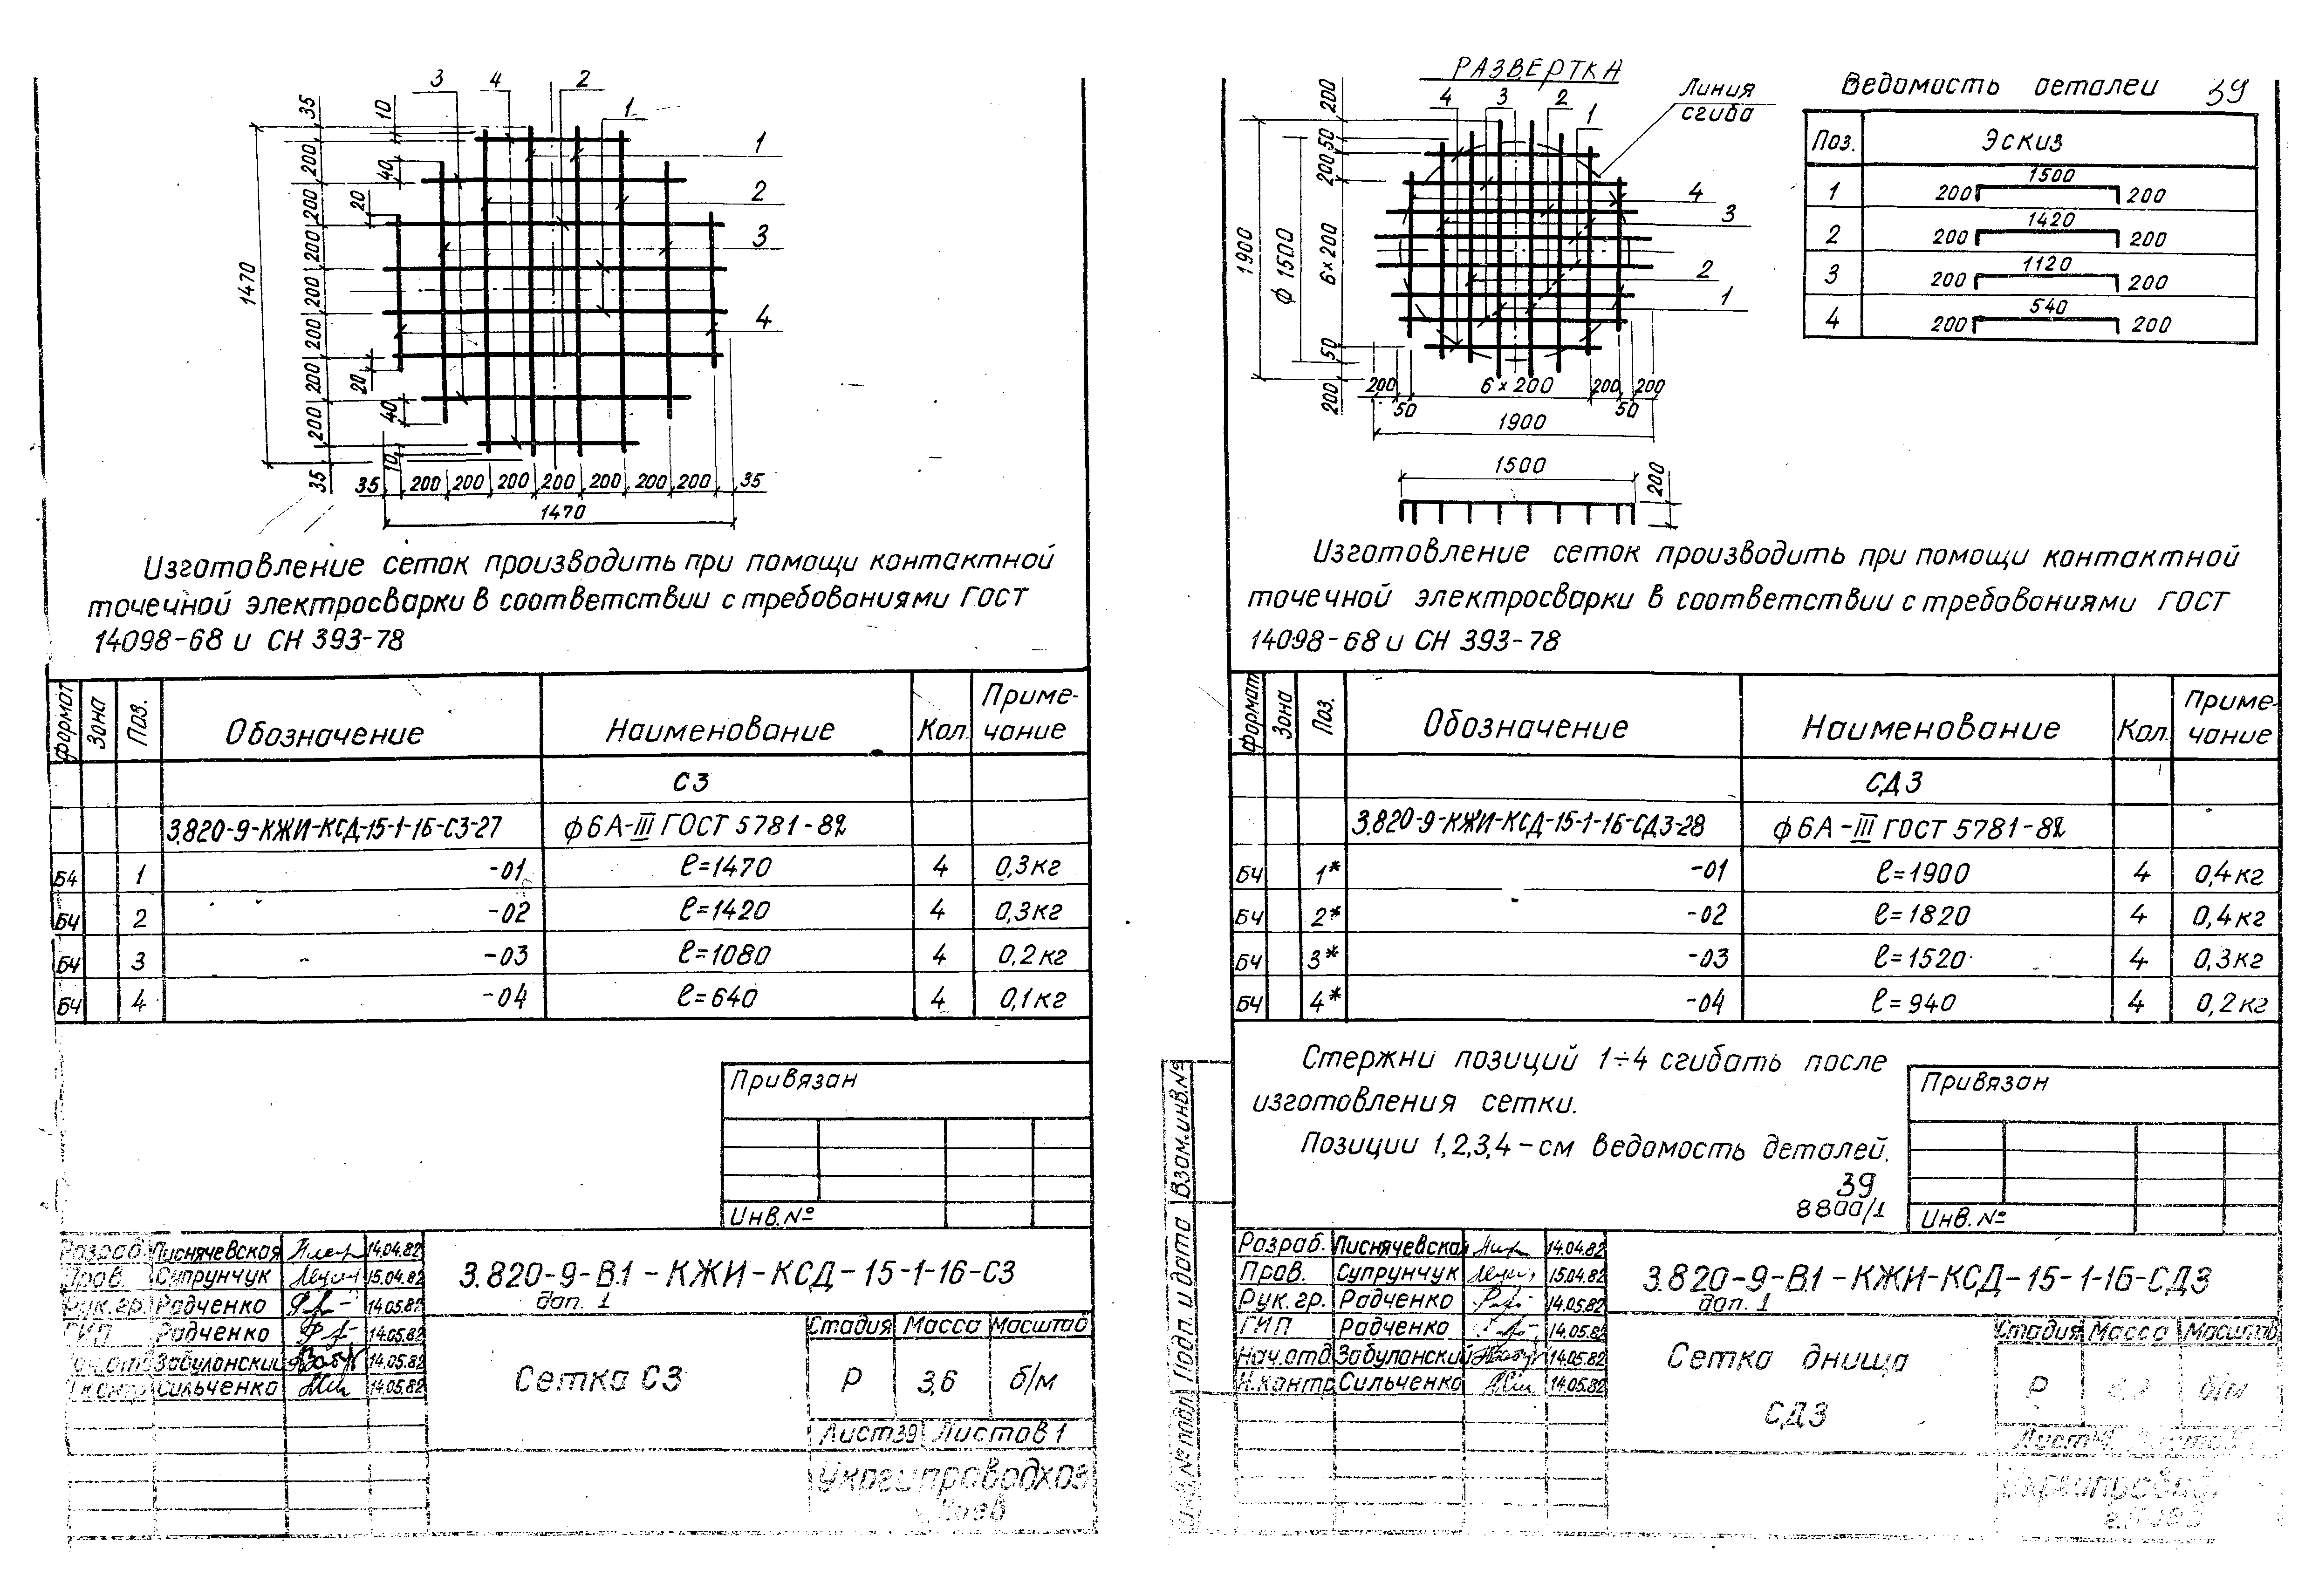 3 4 2
1
1
2
3
4
35 200 200 200 200 200 200 200 35
10 40 20 20 40 10
1470
35 200 200 200 200 200 200 200 35
1470
Изготовление сеток производить при помощи контактной
точечной электросварки в соответствии с требованиями ГОСТ
14098-68 и СН 393-78
Формат Зона Поз. Обозначение Наименование Кол. Приме-
чание
С3
3.820-9-КЖИ-КСД-15-1-16-С3-27 ф6А-III ГОСТ 5781-82
Б4 1 -01 ℓ=1470 4 0,3кг
Б4 2 -02 ℓ=1420 4 0,3кг
Б4 3 -03 ℓ=1080 4 0,2кг
Б4 4 -04 ℓ=640 4 0,1кг
Привязан
Инв.№
Разраб. Писнячевская 14.04.82
Пров. Супрунчук 15.04.82
Рук.гр. Радченко 14.05.82
ГИП Радченко 14.05.82
Забулонский 14.05.82
Сильченко 14.05.82
3.820-9-В.1-КЖИ-КСД-15-1-16-С3
доп. 1
Сетка С3
Стадия Масса Масштаб
Р 3,6 б/м
Лист 39 Листов 1
Укргипроводхоз
г. Киев
РАЗВЕРТКА
Линия
сгиба
4 3 2 1
4
3
2
1
200 50 200 6×200 50 200
1900
ф 1500
200 50 6×200 200 50 200
1900
1500
200
Ведомость деталей 39
Поз. Эскиз
1 200 1500 200
2 200 1420 200
3 200 1120 200
4 200 540 200
Изготовление сеток производить при помощи контактной
точечной электросварки в соответствии с требованиями ГОСТ
14098-68 и СН 393-78
Формат Зона Поз. Обозначение Наименование Кол. Приме-
чание
СД3
3.820-9-КЖИ-КСД-15-1-16-СД3-28 ф6А-III ГОСТ 5781-82
Б4 1* -01 ℓ=1900 4 0,4кг
Б4 2* -02 ℓ=1820 4 0,4кг
Б4 3* -03 ℓ=1520 4 0,3кг
Б4 4* -04 ℓ=940 4 0,2кг
Стержни позиций 1÷4 сгибать после
изготовления сетки.
Позиции 1,2,3,4-см ведомость деталей.
39
8800/1
Привязан
Инв.№
Взам.инв.№
Подп. и дата
Инв.№ подл
Разраб. Писнячевская 14.04.82
Пров. Супрунчук 15.04.82
Рук.гр. Радченко 14.05.82
ГИП Радченко 14.05.82
Нач.отд. Забулонский 14.05.82
Н.контр. Сильченко 14.05.82
3.820-9-В.1-КЖИ-КСД-15-1-16-СД3
доп. 1
Сетка днища
СД3
Стадия Масса Масштаб
Р б/м
Лист